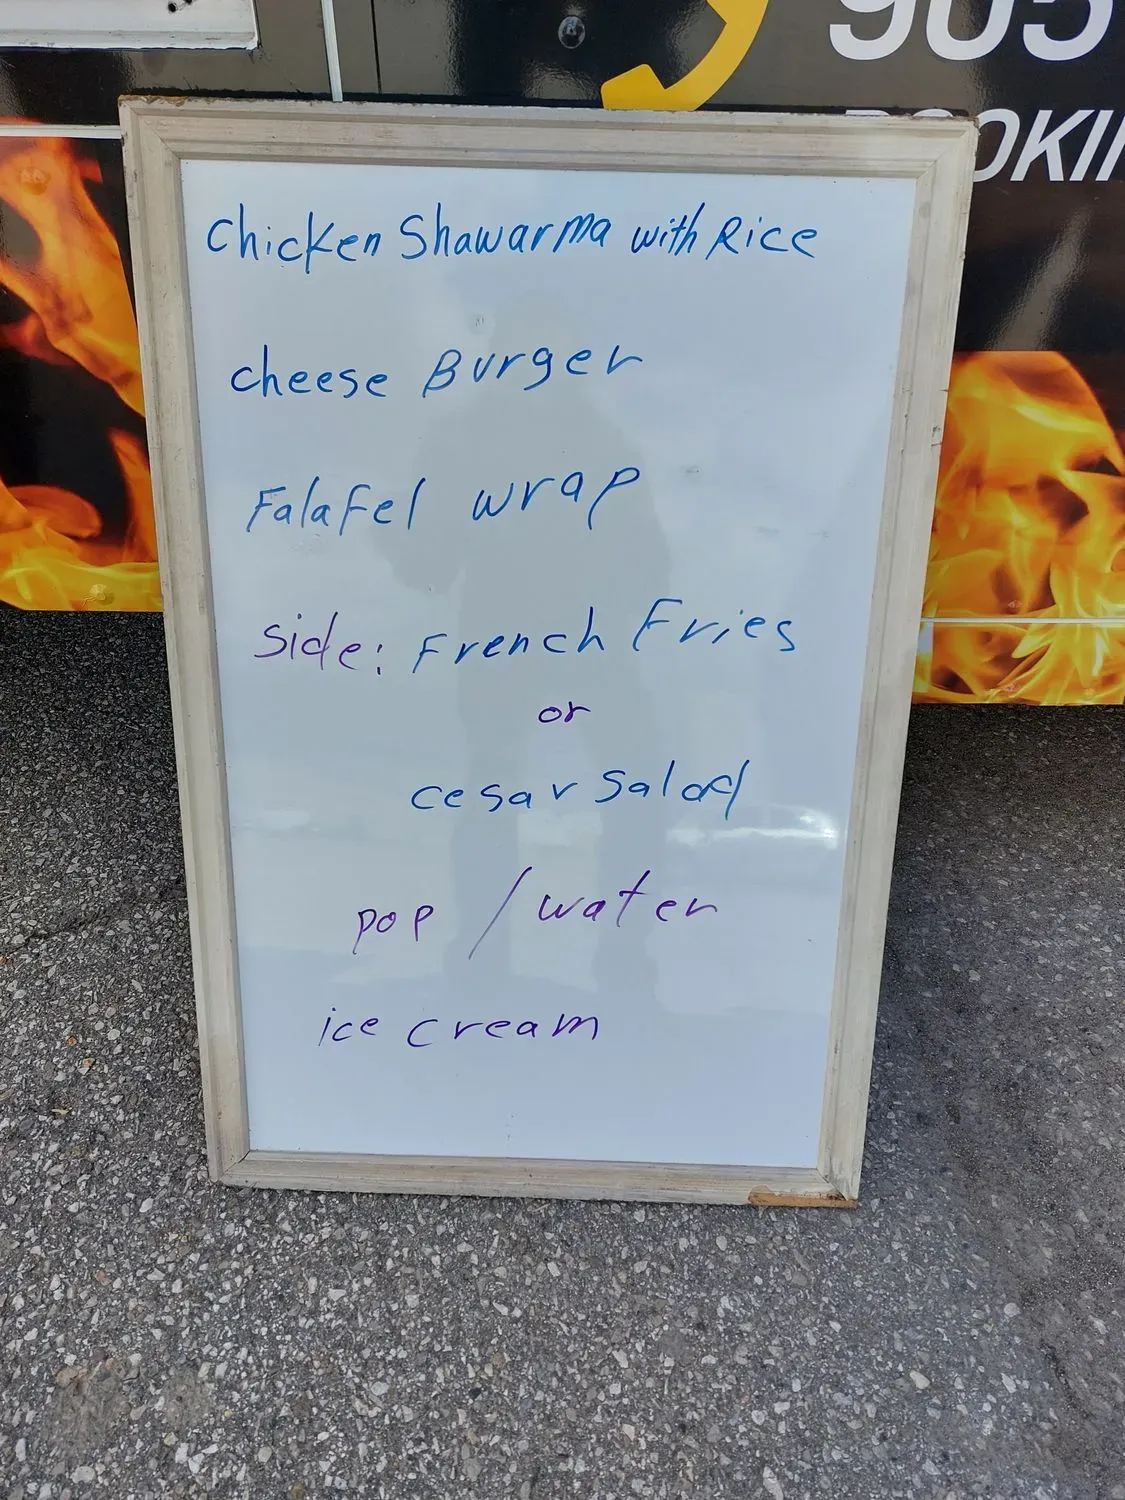 905
Chicken Shawarma with Rice
cheese Burger
Falafel wrap
Side: French Fries
or
cesar Salad
pop / water
ice cream